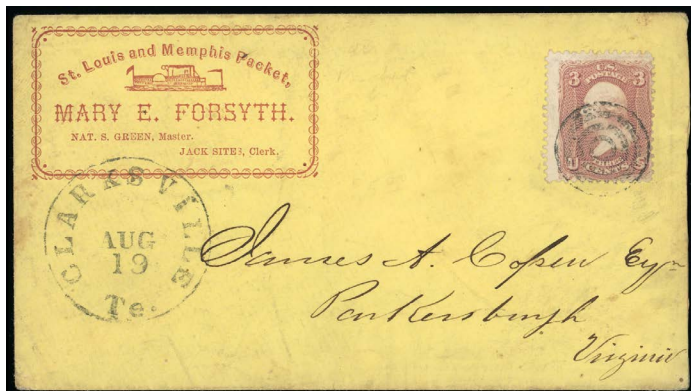 St. Louis and Memphis Packet,
MARY E. FORSYTH.
NAT. S. GREEN, Master.
JACK SITES, Clerk.
3 U.S. POSTAGE 3
U THREE CENTS S
CLARKSVILLE
AUG
19
Te.
James A. Copen Eqr
Parkersburgh
Virginia